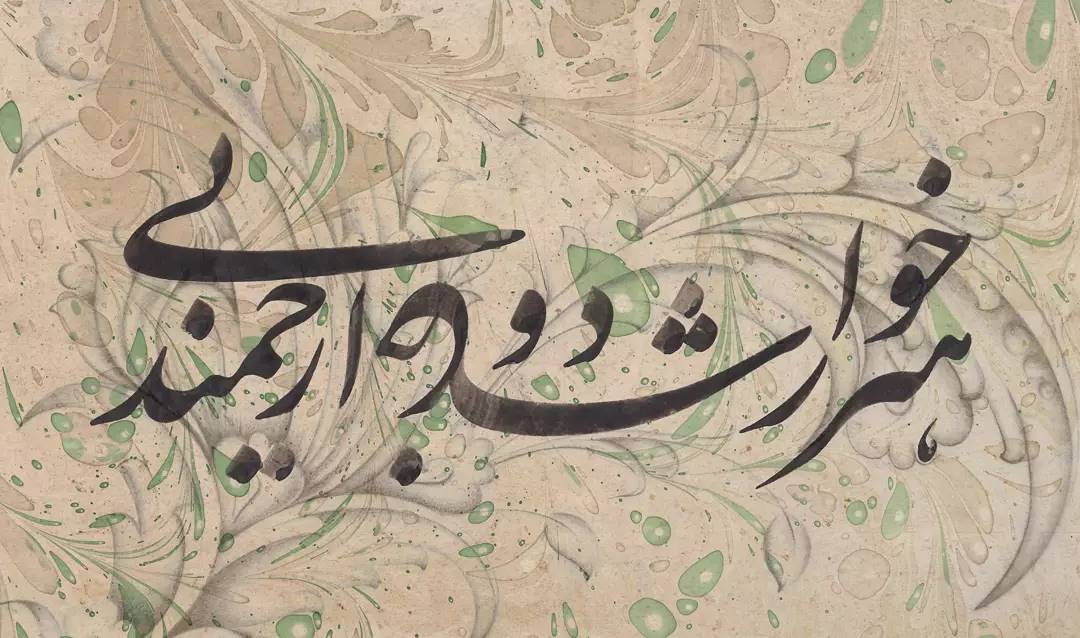 هنر خوار شد جادوی ارجمند